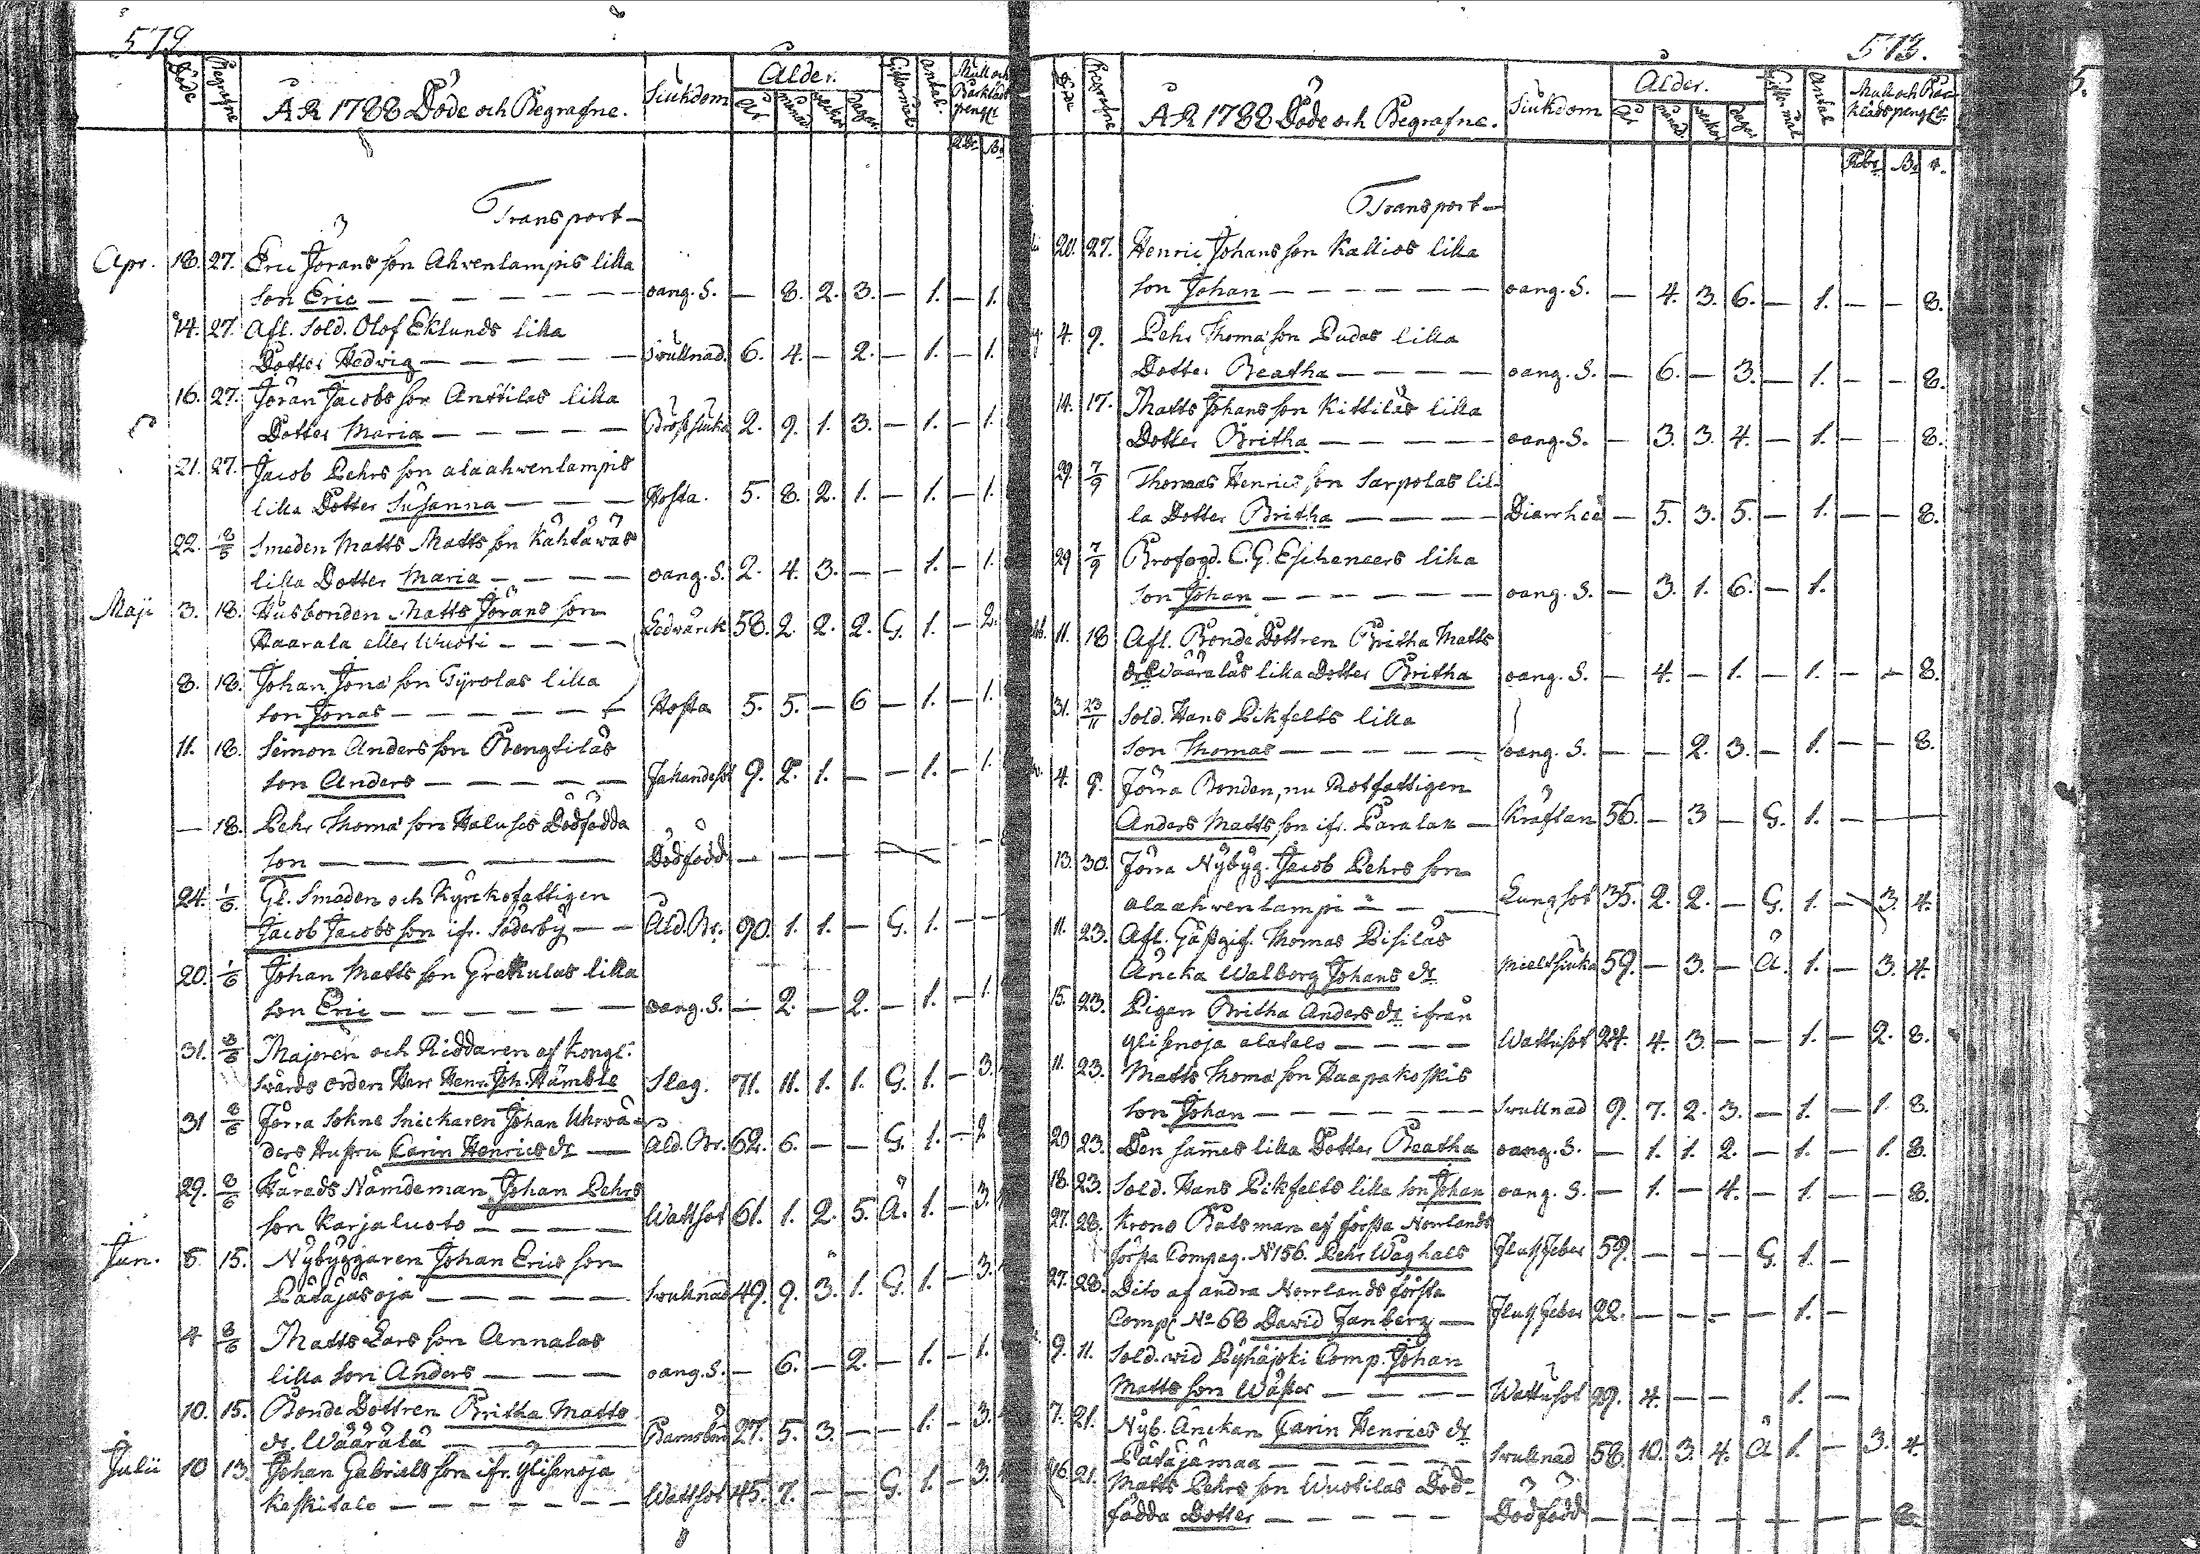 579
Döde
Begrafne
ÅR 1788 Döde och Begrafne.
Siukdom
Ålder.
År
månad
weckor
dagar
Giftermål
Antal.
Mull och
Bårkläds
peng.
Rdr
Transport —
Apr. 18. 27. Eric Jörans son Ahvenlampis lilla
son Eric — oang. S. — 8. 2. 3. — 1. — 1.
14. 27. Afl. Sold. Olof Eklunds lilla
Dotter Hedwig — Swullnad. 6. 4. — 2. — 1. — 1.
16. 27. Jöran Jacobs son Anttilas lilla
Dotter Maria — Bröstsiuka 2. 9. 1. 3. — 1. — 1.
21. 27. Jacob Pehrs son alaahwenlampis
lilla Dotter Susanna — Hosta. 5. 8. 2. 1. — 1. — 1.
22. Smeden Matts Matts son Kähtäwäs
lilla Dotter Maria — oang. S. 2. 4. 3. — — 1. — 1.
Maji 3. 18. Husbonden Matts Jörans son
Haarala eller Wuoti — 58. 2. 2. 2. G. 1. — 2.
8. 18. Johan Jona son Tyrolas lilla
son Jonas — Hosta 5. 5. — 6 — 1. — 1.
11. 18. Simon Anders son Bengtiläs
son Anders — 9. 2. 1. — — 1. — 1.
— 18. Pehr Thoma son Haluses Dödfödda
son — Dödfödd — — —
24. 1/6. Gl. Smeden och Kyrckofattigen
Jacob Jacobs son ifr. Söderby — Åld. Br. 90. 1. 1. — G. 1. — —
20. 1/6 Johan Matts son Grekulas lilla
son Eric — oang. S. — 2. — 2. — 1. — 1.
31. 8/6 Majoren och Riddaren af Kongl.
Swärds orden Herr Henr. Joh. — Slag. 71. 11. 1. 1. G. 1. — 3.
31 8/6 Förra sokne snickaren Johan Uhrwä-
ders Hustru Carin Henrics dr — Åld. Br. 62. 6. — — G. 1. — 2
29. 8/6 Härads Nämdeman Johan Pehrs
son Karjaluoto — Wattsot 61. 1. 2. 5. Ä. 1. — 3.
Jun. 5. 15. Nybyggaren Johan Erics son
Pätäjäsoja — Swullnad 49. 9. 3. 1. G. 1. — 3.
4 8/6 Matts Lars son Annalas
lilla son Anders — oang. S. — 6. — 2. — 1. — 1.
10. 15. Bonde Dottren Britha Matts
dr. Wäärälä — Barnsbörd 27. 5. 3. — — 1. — 3.
Julii 10 13. Johan Gabriels son ifr. Ylisnoja
Keskitalo — Wattsot 45. 7. — — G. 1. — 3.
513.
Döde
Begrafne
ÅR 1788 Döde och Begrafne.
Siukdom
Ålder.
År
månad
weckor
dagar
Giftermål
Antal
Mull och Bår
kläds peng
Transport —
20. 27. Henric Johans son Kallios lilla
son Johan — oang. S. — 4. 3. 6. — 1. — — 8.
4. 9. Pehr Thoma son Pudas lilla
Dotter Beatha — oang. S. — 6. — 3. — 1. — — 8.
14. 17. Matts Johans son Kittiläs lilla
Dotter Britha — oang. S. — 3. 3. 4. — 1. — — 8.
29. 7/9 Thomas Henrics son Sarpolas lil-
la Dotter Britha — Diarrhée — 5. 3. 5. — 1. — — 8.
29 7/9 Profogd. C. G. lilla
son Johan — oang. S. — 3. 1. 6. — 1.
11. 18 Afl. Bonde Dottren Britha Matts
dr Wääräläs lilla Dotter Britha oang. S. — 4. — 1. — 1. — — 8.
31. 23/11 Sold. Hans Pikfelts lilla
son Thomas — oang. S. — — 2. 3. — 1. — — 8.
4. 9. Förra Bonden, nu Rotfattigen
Anders Matts son ifr. — Kräftan 56. — 3 — G. 1. — —
13. 30. Förra Nybyg. Jacob Pehrs son
alaahwenlampi — Lungsot 35. 2. 2. — G. 1. — 3. 4.
11. 23. Afl. Gästgif. Thomas Pisiläs
Äncka Walborg Johans dr mieltsiuka 59. — 3. — Ä. 1. — 3. 4.
15. 23. Pigan Britha Anders dr ifrån
Ylisnoja alatalo — Wattusot 24. 4. 3. — — 1. — 2. 8.
11. 23. Matts Thoma son Haapakoskis
son Johan — Swullnad 9. 7. 2. 3. — 1. — 1. 8.
20 23. Den sammes lilla Dotter Beatha oang. S. — 1. 1. 2. — 1. — 1. 8.
18. 23. Sold. Hans Pikfelts lilla son Johan oang. S. — 1. — 4. — 1. — — 8.
27. 28. Krono Båtsman af första Norrlands
första Compag. N 156. Pehr Waghals Flussfeber 59. — — — G. 1. —
27. 28. Dito af andra Norrlands första
Comp. No 68 David Fanberg — Flussfeber 22. — — — — 1. —
9. 11. Sold. wid Pyhäjoki Comp. Johan
Matts son Wäster — Wattusot 29. 4. — — 1. —
7. 21. Nyb. Änckan Carin Henrics dr
Pätäjämaa — Swullnad 58. 10. 3. 4. Ä 1. — 3. 4.
16. 21. Matts Pehrs son Wuotilas Död-
födda Dotter — Dödfödd — — — — — — — 8.